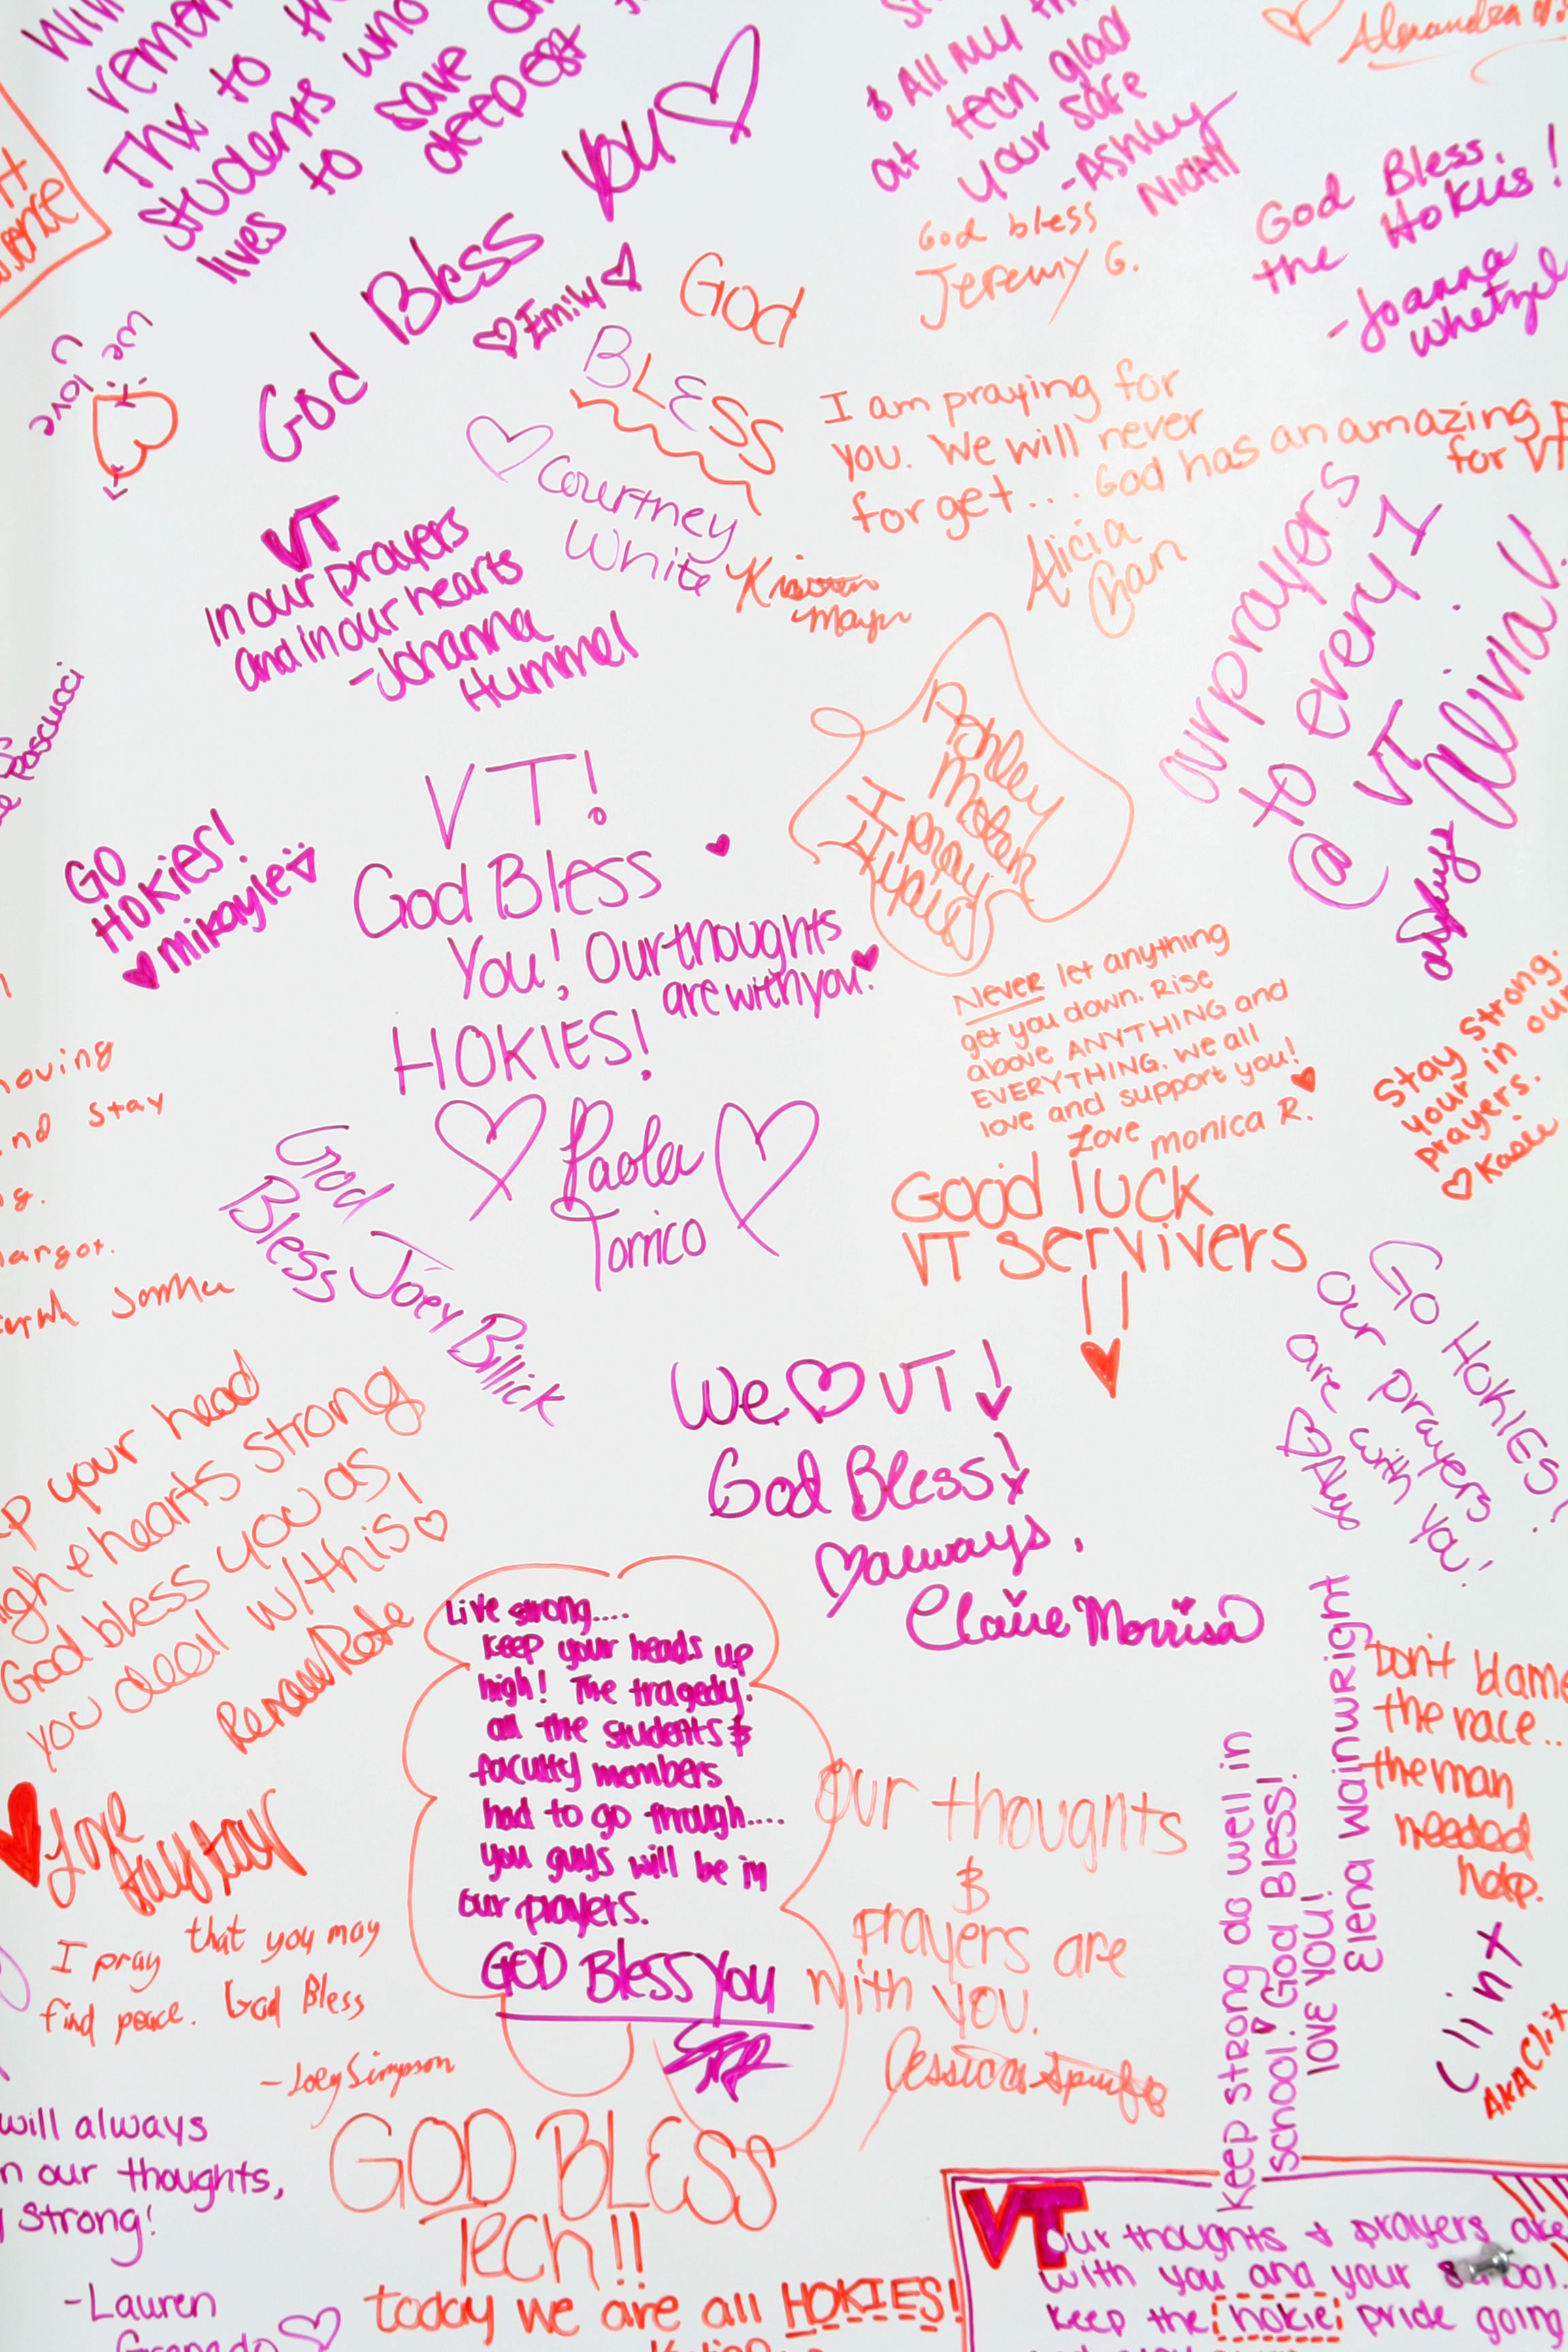 Thx to
students who
lives to save
deepest
God Bless you
Emily
& All My
at tech glad
your safe
-Ashley
God bless
Jeremy G.
God Bless
the Hokies!
-Joanna
Whetzel
Alexandra
we
love
U
God
BLESS
Courtney
White
I am praying for
you. We will never
forget... God has an amazing
for VT
Alicia
Chan
VT
In our prayers
and in our hearts
-Johanna
Hummel
our prayers
to every 1
@ VT
Pascucci
GO
HOKIES!
Mikayle
VT!
God Bless
You! Our thoughts
are with you!
HOKIES!
Paola
Torrico
Ashley
I pray
Never let anything
get you down. Rise
above ANYTHING and
EVERYTHING. we all
love and support you!
Love monica R.
Stay strong.
your in our
prayers.
Kasie
and stay
God
Bless
Joey Billick
Good luck
VT servivers
!!
GO HOKIES!
Our prayers
are with you!
We VT!
God Bless!
always,
Claire Morrison
your head
hearts strong
God bless you as
you deal w/ this!
Love
I pray that you may
find peace. God Bless
-Joey Simpson
Live strong....
keep your heads up
high! The tragedy.
all the students &
faculty members
had to go through....
you guys will be in
our prayers.
GOD Bless You
Our thoughts
&
prayers are
with you.
Jessica
Keep strong do well in
school. God Bless!
love you!
Elena Wainwright
Don't blame
the race..
the man
needed
help.
Clint
AKA Clit
will always
in our thoughts,
strong!
-Lauren
GOD BLESS
TECH!!
today we are all HOKIES!
VT
Our thoughts & prayers are
with you and your school.
keep the hokie pride going